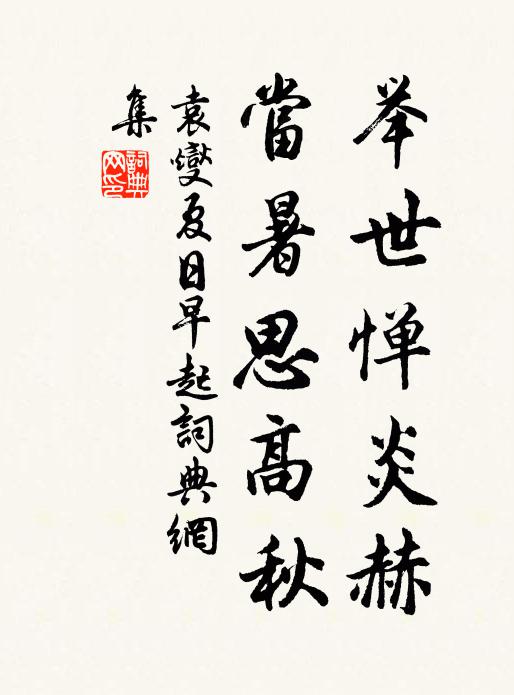 举世惮炎赫
當暑思高秋
袁燮夏日早起詞典網
集
詞典網印